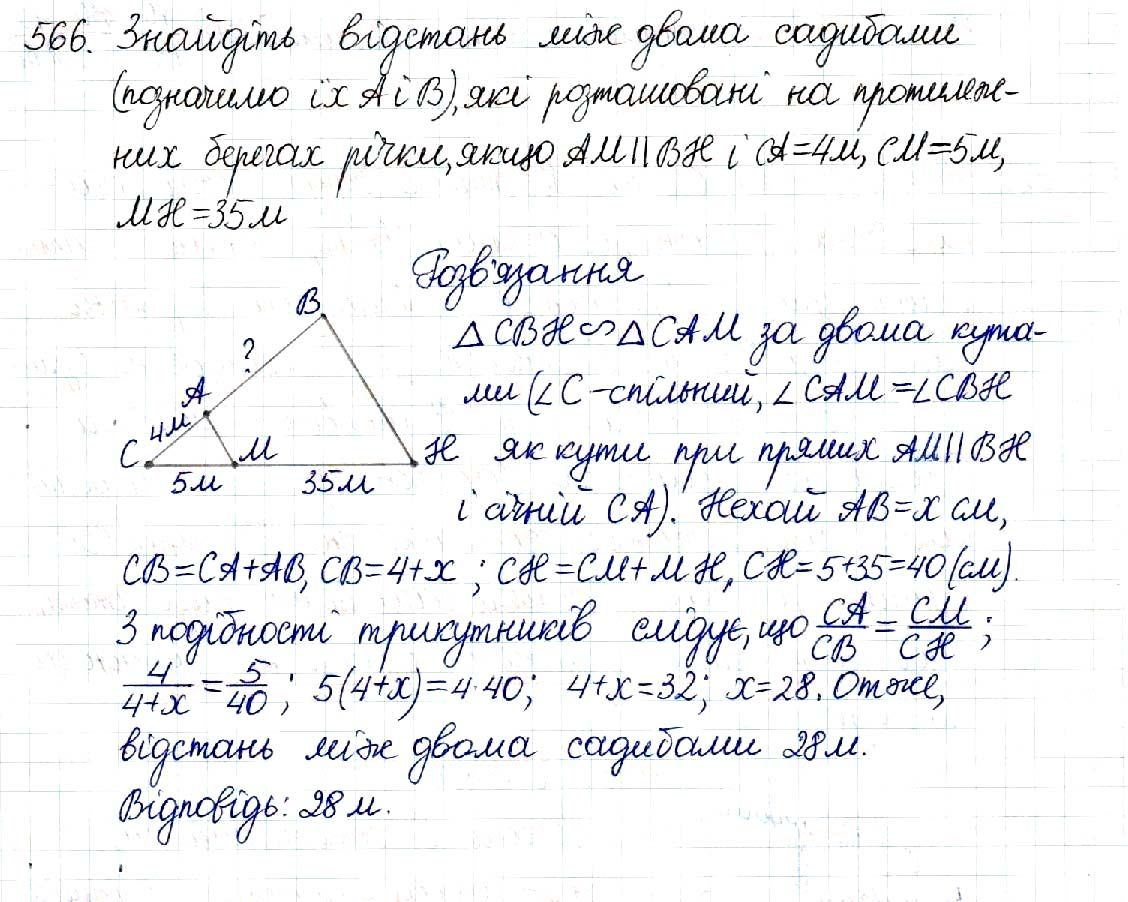 566. Знайдіть відстань між двома садибами
(позначимо їх А і В), які розташовані на протилеж-
них берегах річки, якщо АМ||ВН і СА=4м, СМ=5м,
МН=35м
Розв'язання
В
?
А
4м
С
М
Н
5м
35м
△СВН∽△САМ за двома кута-
ми (∠С-спільний, ∠САМ=∠СВН
як кути при прямих АМ||ВН
і січній СА). Нехай АВ=х см,
СВ=СА+АВ, СВ=4+х ; СН=СМ+МН, СН=5+35=40(см).
З подібності трикутників слідує, що СА/СВ = СМ/СН ;
4/(4+х) = 5/40 ; 5(4+х)=4·40; 4+х=32; х=28. Отже,
відстань між двома садибами 28м.
Відповідь: 28 м.